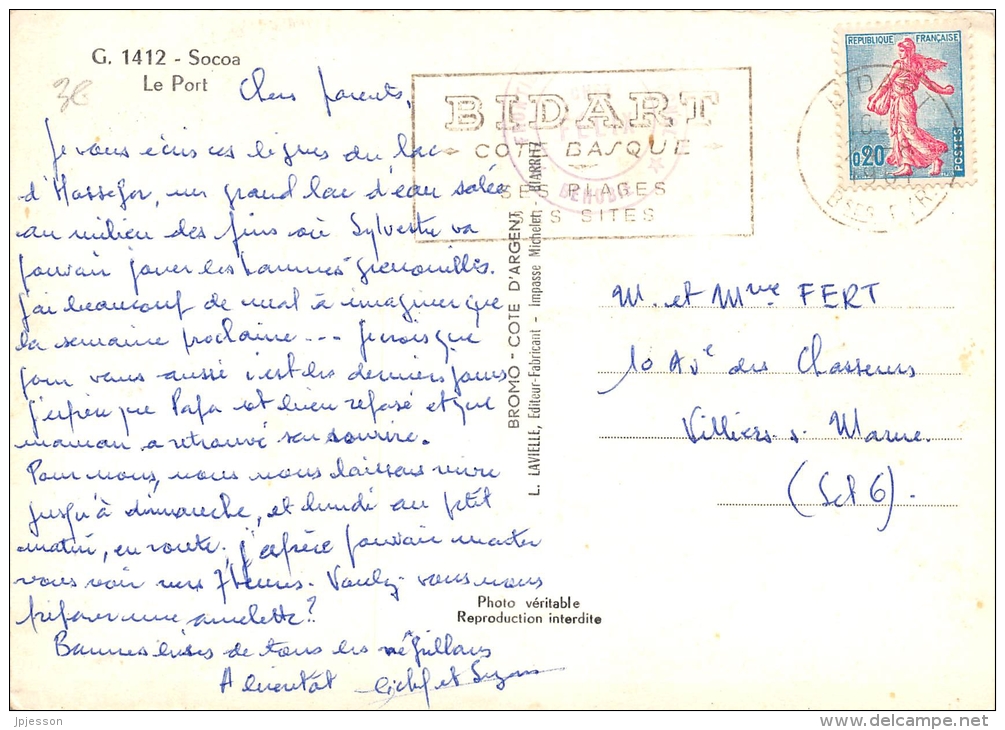 G. 1412 - Socoa
Le Port
3€
Chers parents,
Je vous écris ces lignes du lac
d'Hossegor, un grand lac d'eau salée
au milieu des pins où Sylvestre va
pouvoir jouer les hommes grenouilles.
J'ai beaucoup de mal à imaginer que
la semaine prochaine --- Je crois que
pour vous aussi c'est les derniers jours
j'espère que Papa est bien reposé et que
maman a retrouvé son sourire.
Pour nous, nous nous laissons vivre
jusqu'à dimanche, et lundi au petit
matin, en route, j'espère pouvoir
vous voir vers 7 heures. Voulez-vous nous
préparer une omelette?
Bonnes bises de tous les
A bientôt et
BIDART
COTE BASQUE
SES PLAGES
SES SITES
BEHOBIE
REPUBLIQUE FRANÇAISE
0,20
POSTES
BIDART
1961
BSES PYR
BROMO - COTE D'ARGENT
L. LAVIELLE, Editeur-Fabricant - Impasse Michelet - BIARRITZ
M. et Mme FERT
10 Ave des Chasseurs
Villiers s. Marne.
(Set O).
Photo véritable
Reproduction interdite
jpjesson
delcampe.net